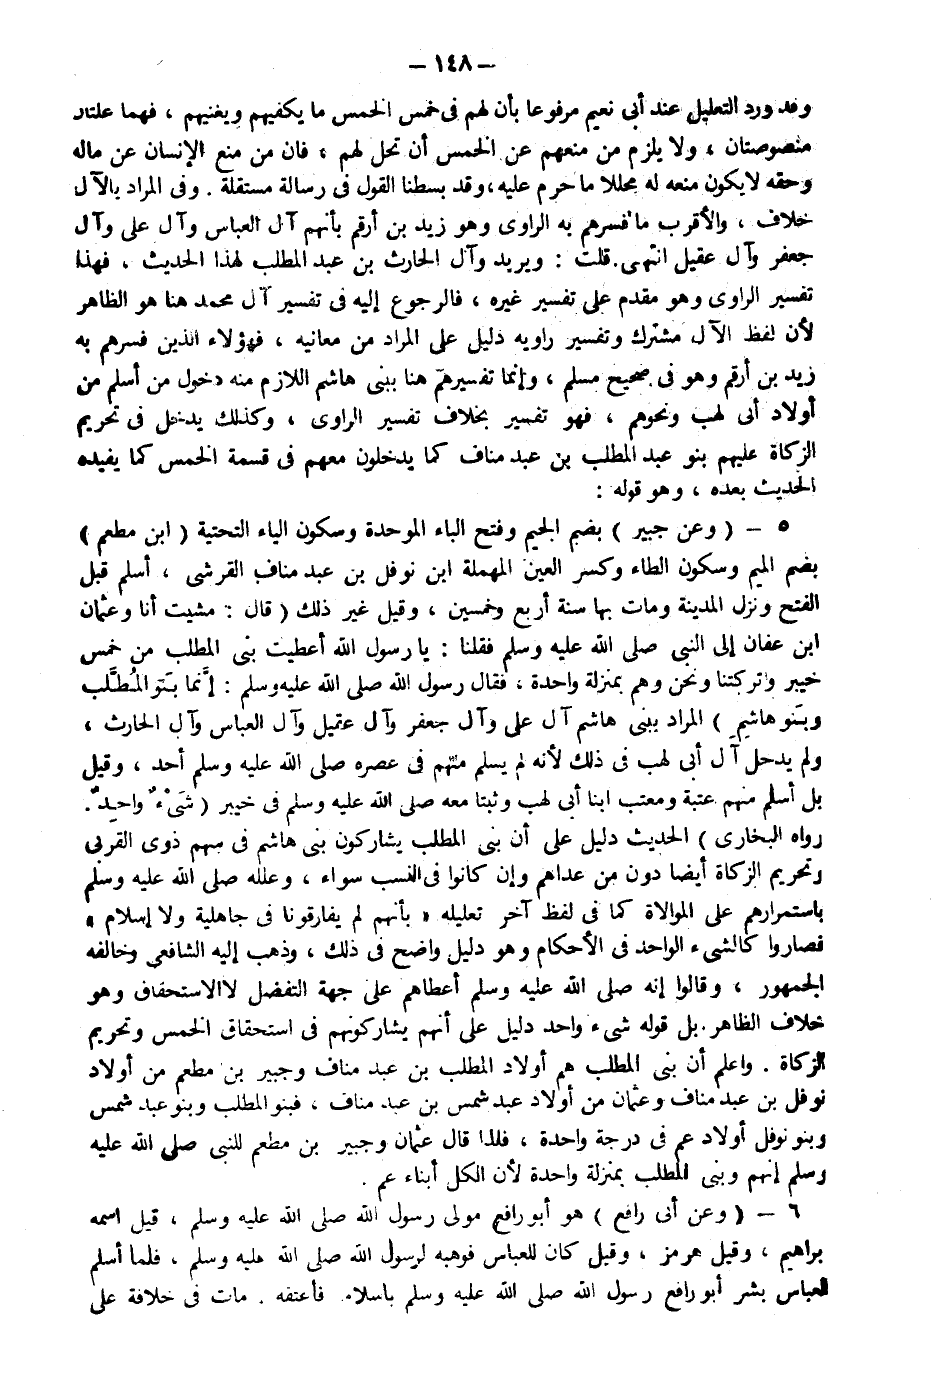 — ١٤٨ —
وقد ورد التعليل عند أبى نعيم مرفوعا بأن لهم فى خمس الخمس ما يكفيهم ويغنيهم ، فهما علتان
منصوصتان ، ولا يلزم من منعهم عن الخمس أن تحل لهم ، فان من منع الإنسان عن ماله
وحقه لايكون منعه له محللا ما حرم عليه ، وقد بسطنا القول فى رسالة مستقلة . وفى المراد بالآل
خلاف ، والأقرب ما فسرهم به الراوى وهو زيد بن أرقم بأنهم آل العباس وآل على وآل
جعفر وآل عقيل انتهى . قلت : ويريد وآل الحارث بن عبد المطلب لهذا الحديث ، فهذا
تفسير الراوى وهو مقدم على تفسير غيره ، فالرجوع إليه فى تفسير آل محمد هنا هو الظاهر
لأن لفظ الآل مشترك وتفسير راويه دليل على المراد من معانيه ، فهؤلاء الذين فسرهم به
زيد بن أرقم وهو فى صحيح مسلم ، وإنما تفسيرهم هنا ببنى هاشم اللازم منه دخول من أسلم من
أولاد أبى لهب ونحوهم ، فهو تفسير بخلاف تفسير الراوى ، وكذلك يدخل فى تحريم
الزكاة عليهم بنو عبد المطلب بن عبد مناف كما يدخلون معهم فى قسمة الخمس كما يفيده
الحديث بعده ، وهو قوله :
٥ — ( وعن جبير ) بضم الجيم وفتح الباء الموحدة وسكون الياء التحتية ( ابن مطعم )
بضم الميم وسكون الطاء وكسر العين المهملة ابن نوفل بن عبد مناف القرشى ، أسلم قبل
الفتح ونزل المدينة ومات بها سنة أربع وخمسين ، وقيل غير ذلك ( قال : مشيت أنا وعثمان
ابن عفان إلى النبى صلى الله عليه وسلم فقلنا : يا رسول الله أعطيت بنى المطلب من خمس
خيبر وتركتنا ونحن وهم بمنزلة واحدة ، فقال رسول الله صلى الله عليه وسلم : إنَّما بَنو المُطَّلب
وبَنو هاشمٍ ) المراد ببنى هاشم آل على وآل جعفر وآل عقيل وآل العباس وآل الحارث ،
ولم يدخل آل أبى لهب فى ذلك لأنه لم يسلم منهم فى عصره صلى الله عليه وسلم أحد ، وقيل
بل أسلم منهم عتبة ومعتب ابنا أبى لهب وثبتا معه صلى الله عليه وسلم فى خيبر ( شَىْءٌ واحِدٌ .
رواه البخارى ) الحديث دليل على أن بنى المطلب يشاركون بنى هاشم فى سهم ذوى القربى
وتحريم الزكاة أيضا دون من عداهم وإن كانوا فى النسب سواء ، وعلله صلى الله عليه وسلم
باستمرارهم على الموالاة كما فى لفظ آخر تعليله « بأنهم لم يفارقونا فى جاهلية ولا إسلام »
فصاروا كالشىء الواحد فى الأحكام وهو دليل واضح فى ذلك ، وذهب إليه الشافعى وخالفه
الجمهور ، وقالوا إنه صلى الله عليه وسلم أعطاهم على جهة التفضل لا الاستحقاق وهو
خلاف الظاهر . بل قوله شىء واحد دليل على أنهم يشاركونهم فى استحقاق الخمس وتحريم
الزكاة . واعلم أن بنى المطلب هم أولاد المطلب بن عبد مناف وجبير بن مطعم من أولاد
نوفل بن عبد مناف وعثمان من أولاد عبد شمس بن عبد مناف ، فبنو المطلب وبنو عبد شمس
وبنو نوفل أولاد عم فى درجة واحدة ، فلذا قال عثمان وجبير بن مطعم للنبى صلى الله عليه
وسلم إنهم وبنى المطلب بمنزلة واحدة لأن الكل أبناء عم .
٦ — ( وعن أبى رافع ) هو أبو رافع مولى رسول الله صلى الله عليه وسلم ، قيل اسمه
براهيم ، وقيل هرمز ، وقيل كان للعباس فوهبه لرسول الله صلى الله عليه وسلم ، فلما أسلم
العباس بشر أبو رافع رسول الله صلى الله عليه وسلم باسلامه فأعتقه . مات فى خلافة على